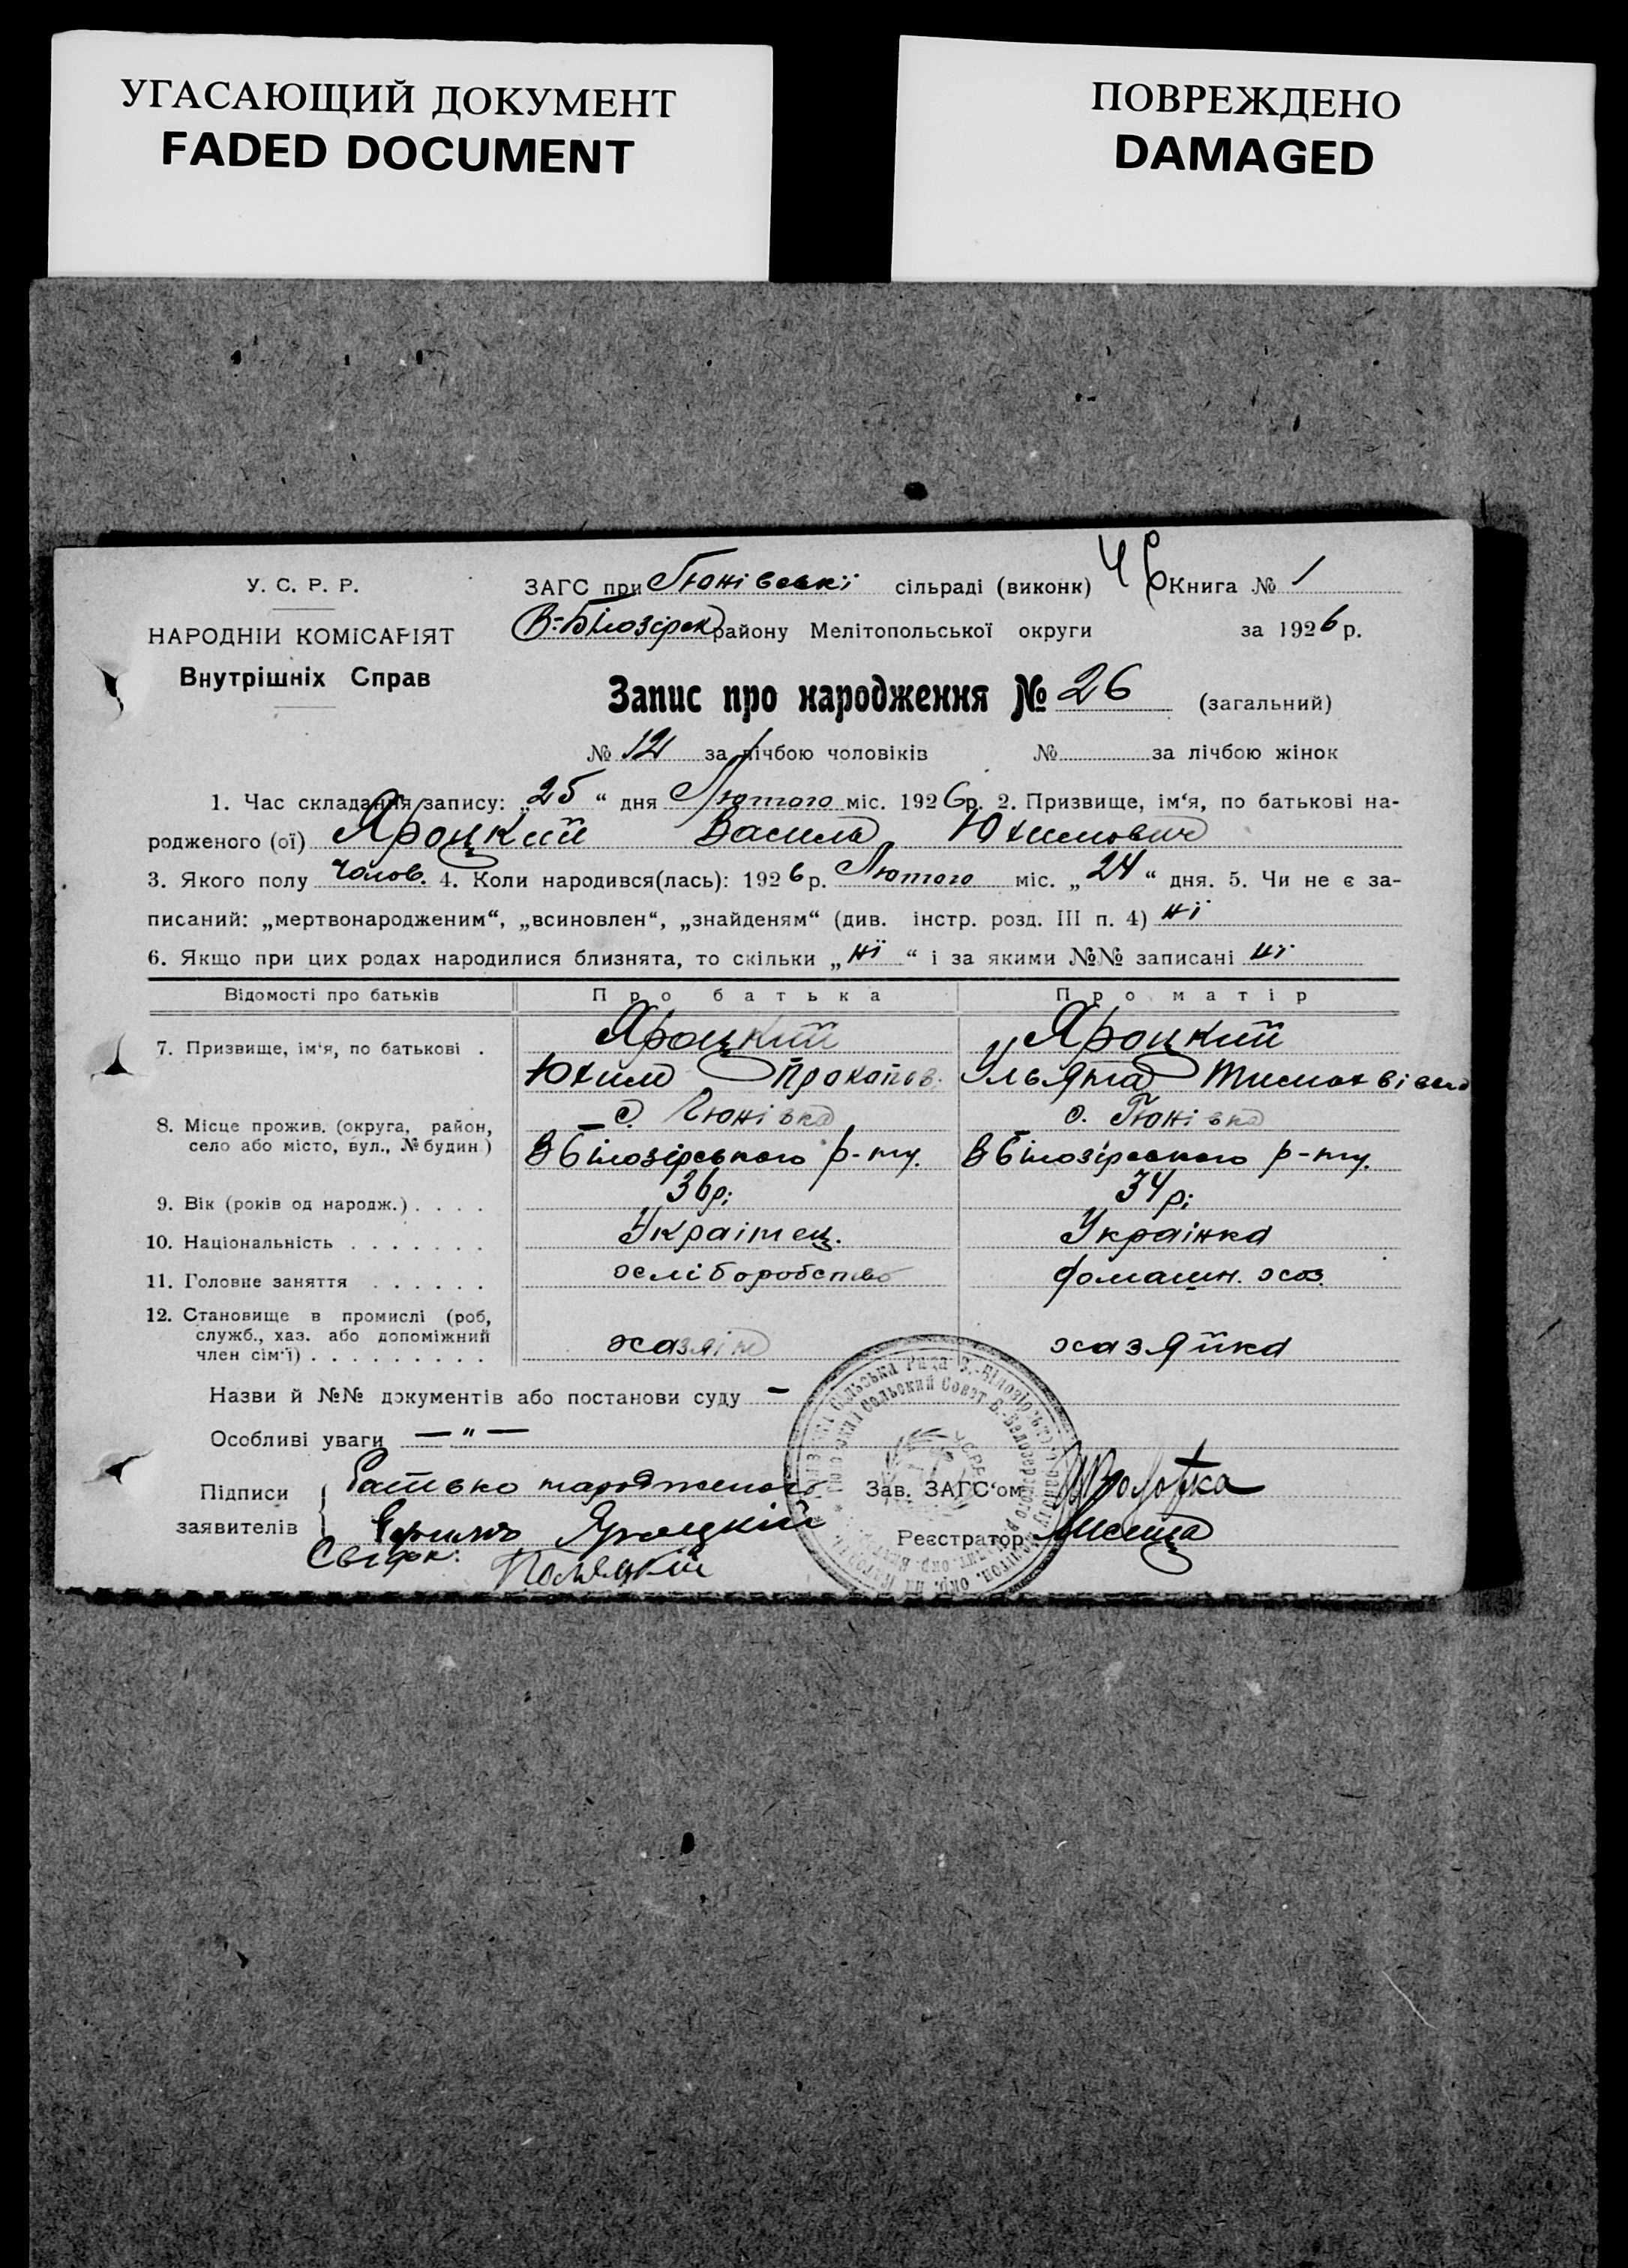 УГАСАЮЩИЙ ДОКУМЕНТ
FADED DOCUMENT
ПОВРЕЖДЕНО
DAMAGED
У. С. Р. Р.
НАРОДНІЙ КОМІСАРІЯТ
Внутрішніх Справ
ЗАГС при Гюнівські сільраді (виконк) 46 Книга № 1
В-Білозірск району Мелітопольської округи за 1926 р.
Запис про народження № 26 (загальний)
№ 12 за лічбою чоловіків № за лічбою жінок
1. Час складання запису: „25“ дня Лютого міс. 1926 р. 2. Призвище, ім‘я, по батькові на-
родженого (ої) Яроцкий Василь Юхимович
3. Якого полу чолов. 4. Коли народився(лась): 1926 р. Лютого міс. „24“ дня. 5. Чи не є за-
писаний: „мертвонародженим“, „всиновлен“, „знайденям“ (див. інстр. розд. III п. 4) ні
6. Якщо при цих родах народилися близнята, то скільки „ні“ і за якими №№ записані ні
Відомості про батьків Про батька Про матір
7. Призвище, ім‘я, по батькові . Яроцкий Яроцкий
Юхим Прокопов. Ульяна
8. Місце прожив. (округа, район, село або місто, вул., № будин.) с. Гюнівка с. Гюнівка
В Білозірського р-ну. В Білозірського р-ну.
9. Вік (років од народж.) . . . . 36 р. 34 р.
10. Національність . . . . . . . Українец. Українка
11. Головне заняття . . . . . . хліборобство домашн. хоз.
12. Становище в промислі (роб, служб., хаз. або допоміжний член сім‘ї) . . . . . . . . . хазяін хазяйка
Назви й №№ документів або постанови суду —
Особливі уваги — " —
Підписи заявителів
Батько народженого
Яроцкій
Свидок:
Зав. ЗАГС‘ом
Реєстратор